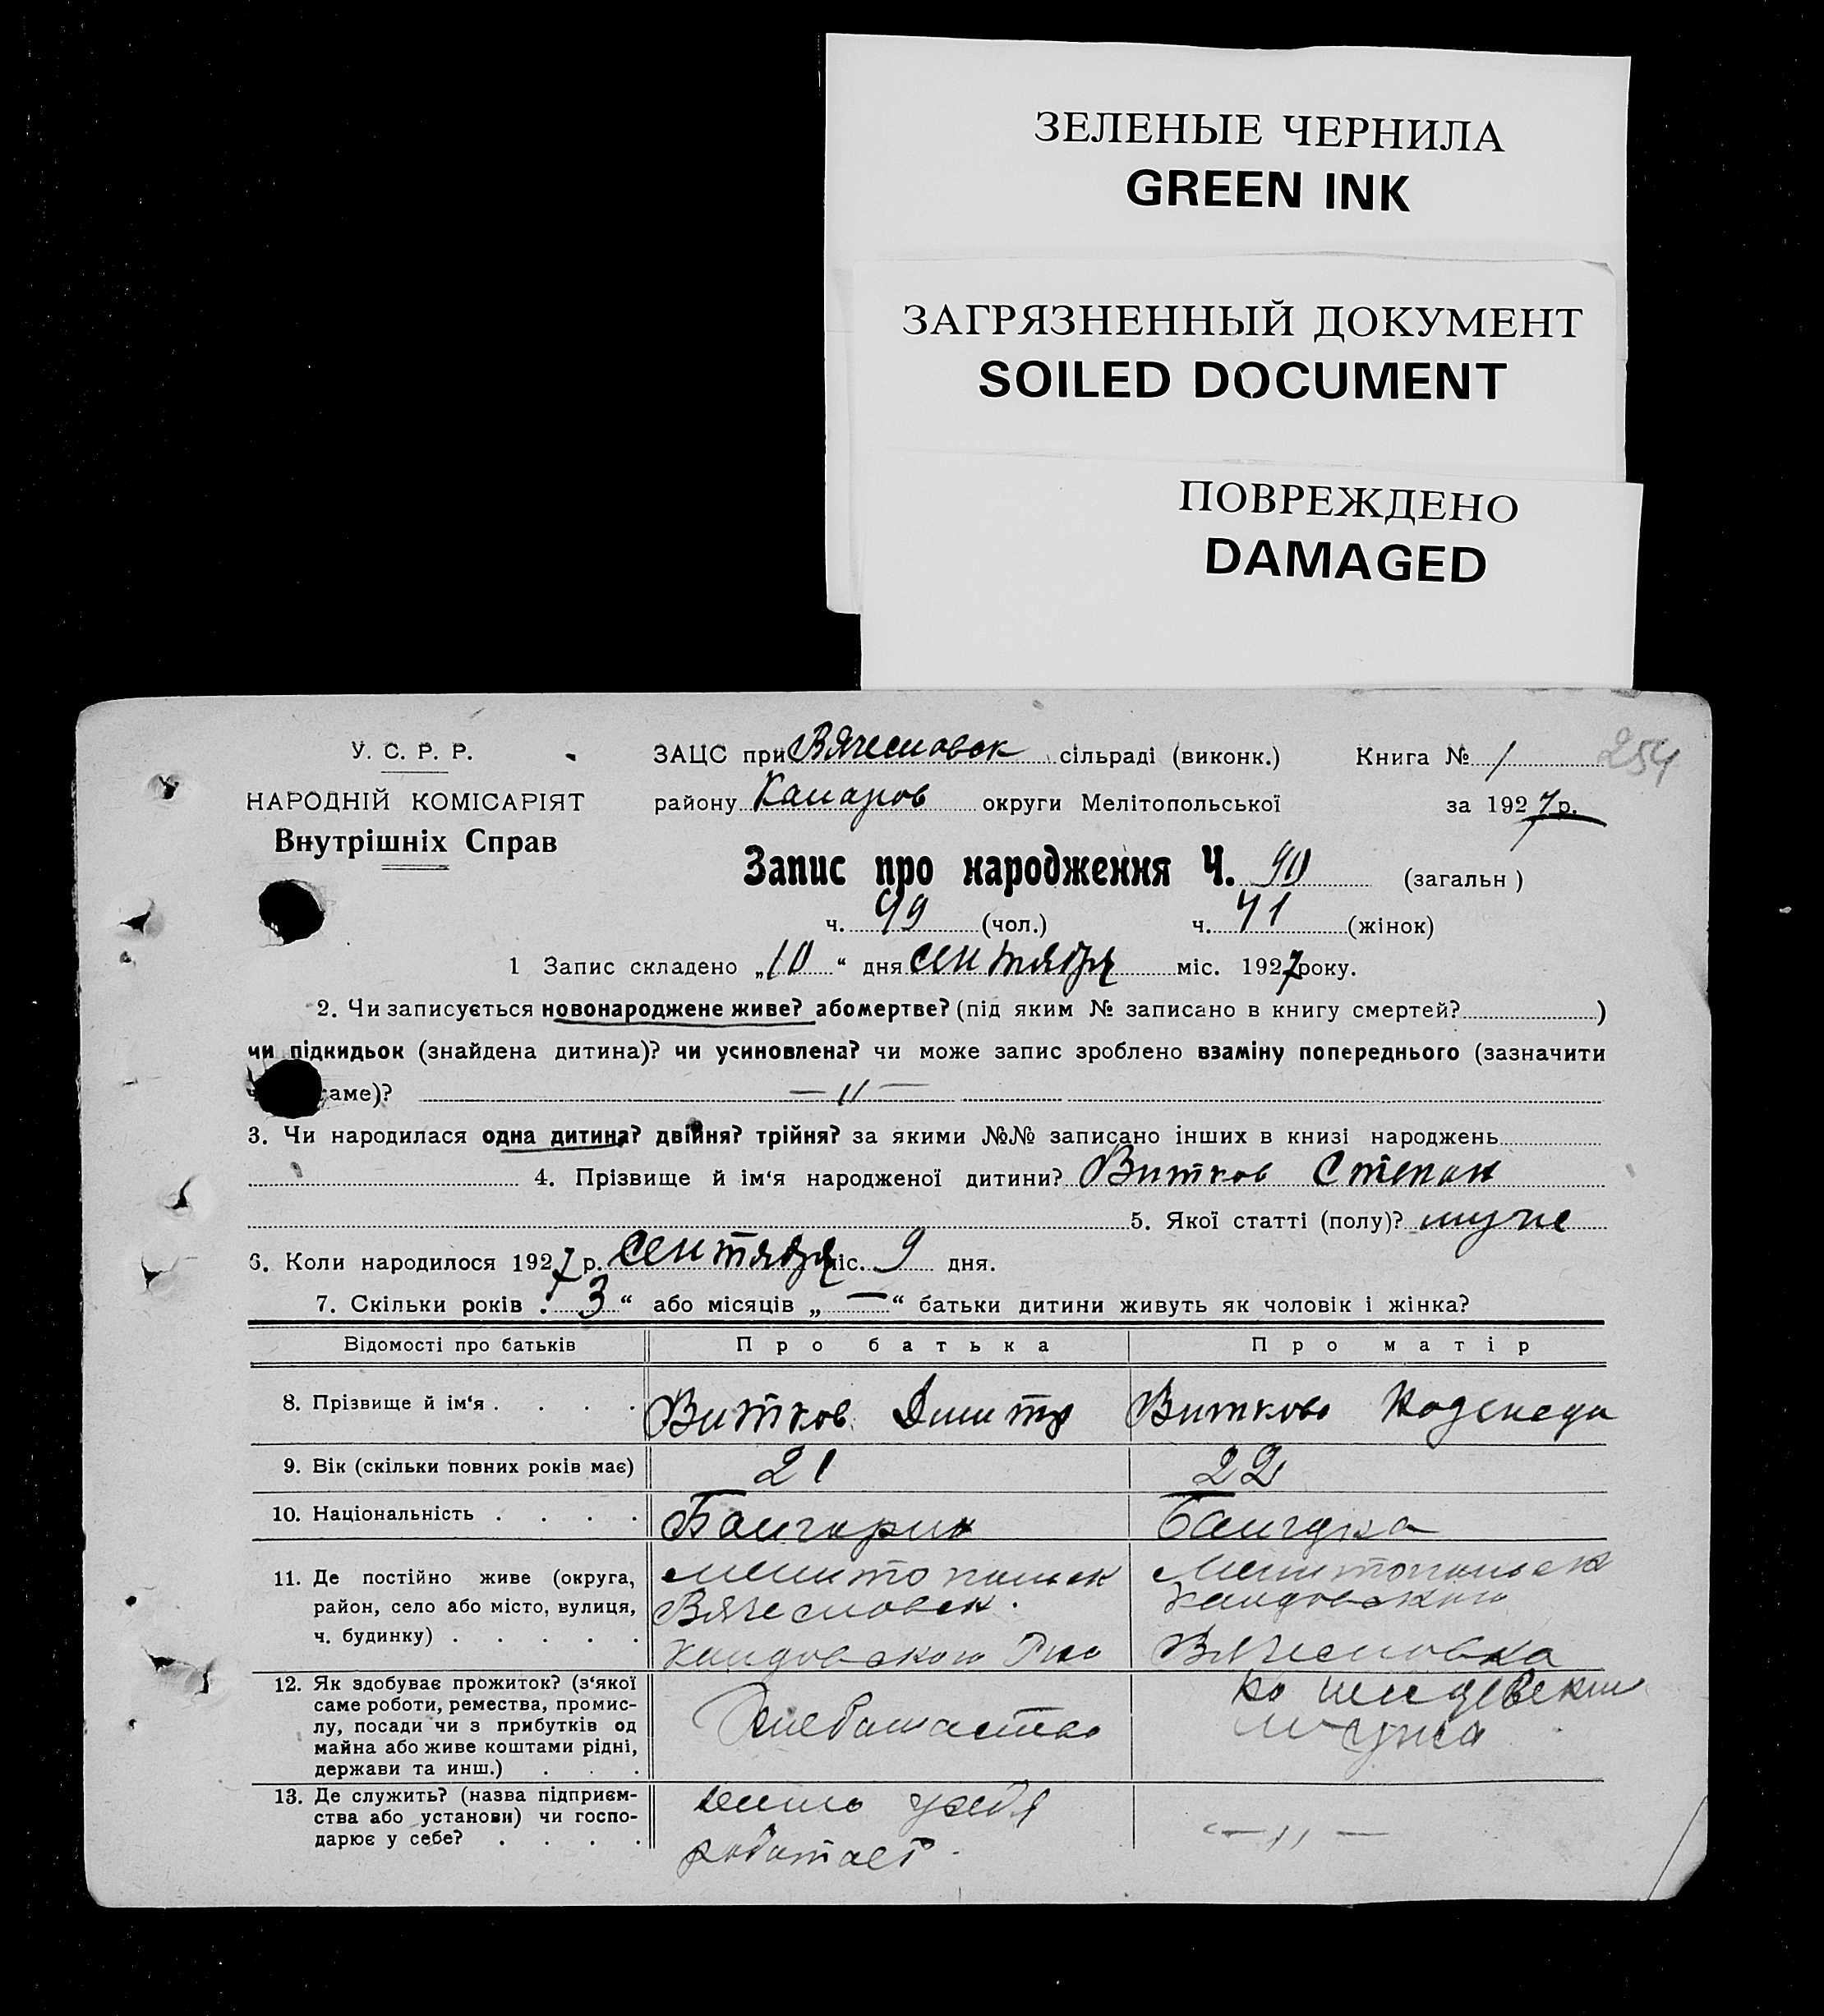 ЗЕЛЕНЫЕ ЧЕРНИЛА
GREEN INK
ЗАГРЯЗНЕННЫЙ ДОКУМЕНТ
SOILED DOCUMENT
ПОВРЕЖДЕНО
DAMAGED
254
У. С. Р. Р.
НАРОДНІЙ КОМІСАРІЯТ
Внутрішніх Справ
ЗАЦС при Вячесловск сільраді (виконк.) Книга № 1
району округи Мелітопольської за 1927 р.
Запис про народження Ч. 90 (загальн )
ч. 49 (чол.) ч. 41 (жінок)
1 Запис складено „10“ дня сентября міс. 1927 року.
2. Чи записується новонароджене живе? або мертве? (під яким № записано в книгу смертей? )
чи підкидьок (знайдена дитина)? чи усиновлена? чи може запис зроблено взаміну попереднього (зазначити
саме)? — 〃 —
3. Чи народилася одна дитина? двійня? трійня? за якими №№ записано інших в книзі народжень
4. Прізвище й ім‘я народженої дитини? Витков Степан
5. Якої статті (полу)?
6. Коли народилося 1927 р. сентября міс. 9 дня.
7. Скільки років „3“ або місяців „—“ батьки дитини живуть як чоловік і жінка?
Відомості про батьків Про батька Про матір
8. Прізвище й ім‘я . . . . Витков Дмитр Виткова Надежда
9. Вік (скільки повних років має) 21 22
10. Національність . . . . Болгарин
11. Де постійно живе (округа,
район, село або місто, вулиця,
ч. будинку) . . . . .
Мелитопольск
Вячесловск.
Мелитопольск
Вячесловка
12. Як здобуває прожиток? (з‘якої
саме роботи, ремества, промис-
лу, посади чи з прибутків од
майна або живе коштами рідні,
держави та инш.) . . .
Хлебопашество
мужа
13. Де служить? (назва підприєм-
ства або установи) чи госпо-
дарює у себе? . . . .
у себя
работает.
— 〃 —